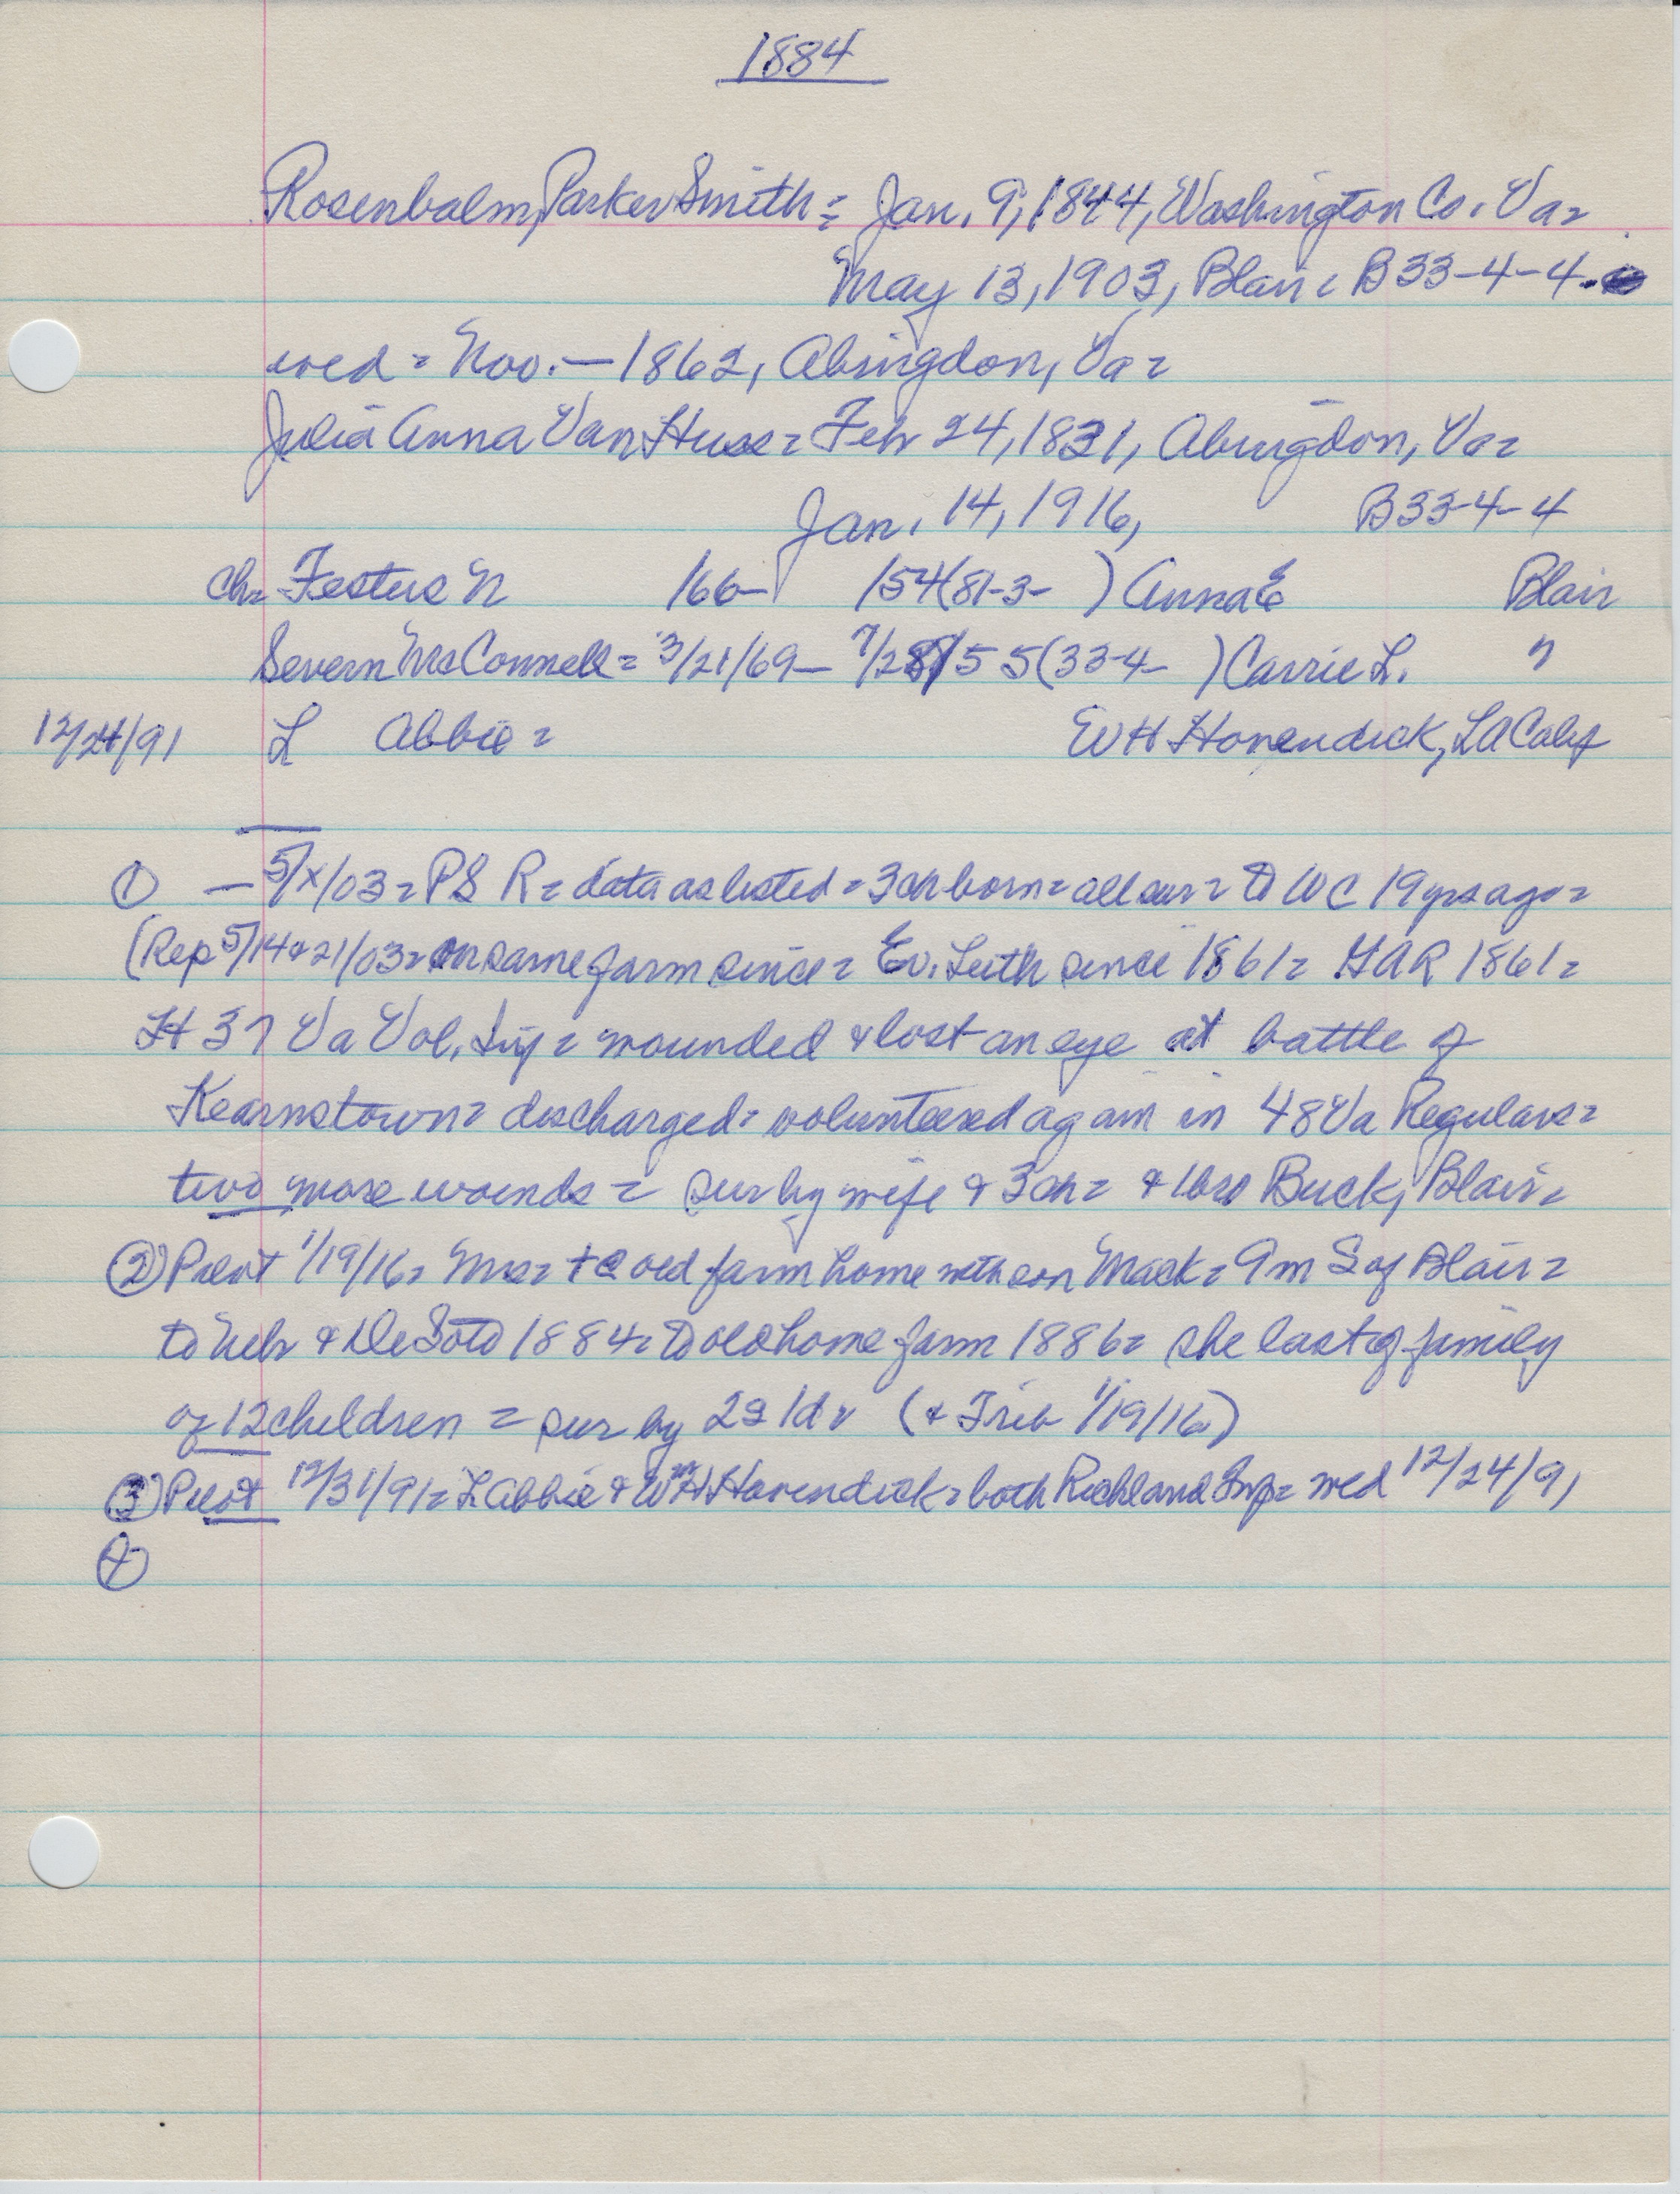 1884
Rosenbalm, Parker Smith = Jan. 9, 1844, Washington Co. Va =
May 13, 1903, Blair = B33-4-4.
wed = Nov. — 1862, Abingdon, Va =
Julia Anna Van Huss = Feb 24, 1831, Abingdon, Va =
Jan. 14, 1916, B33-4-4
Ch = Festus N 166- 154 (81-3- ) Anna E Blair
Severn McConnell = 3/21/69 - 7/28/55 (33-4- ) Carrie L. "
12/24/91 L Abbie = WH Hovendick, LA Calif
① — 5/x/03 = PS R = data as listed = 3 ch born = all sur = to WC 19 yrs ago =
(Rep 5/14 & 21/03 = on same farm since = Ev. Luth since 1861 = GAR 1861 =
H 37 Va Vol. Inf = wounded & lost an eye at battle of
Kearnstown = discharged = volunteered again in 48 Va Regulars =
two more wounds = sur by wife & 3 ch = & bro Buck, Blair =
② Pilot 1/19/16 = Mrs = + @ old farm home with son Mack = 9 m S of Blair =
to Neb & De Soto 1884 = to old home farm 1886 = she last of family
of 12 children = sur by 2s 1d v (& Trib 1/19/16)
③ Pilot 12/31/91 = L Abbie & Wm H Hovendick = both Richland Twp = wed 12/24/91
④